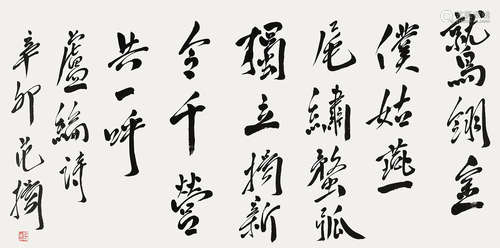 鷲翎金
僕姑燕
尾繡蝥弧
獨立揚新
令千營
共一呼
盧綸詩
辛卯范揚